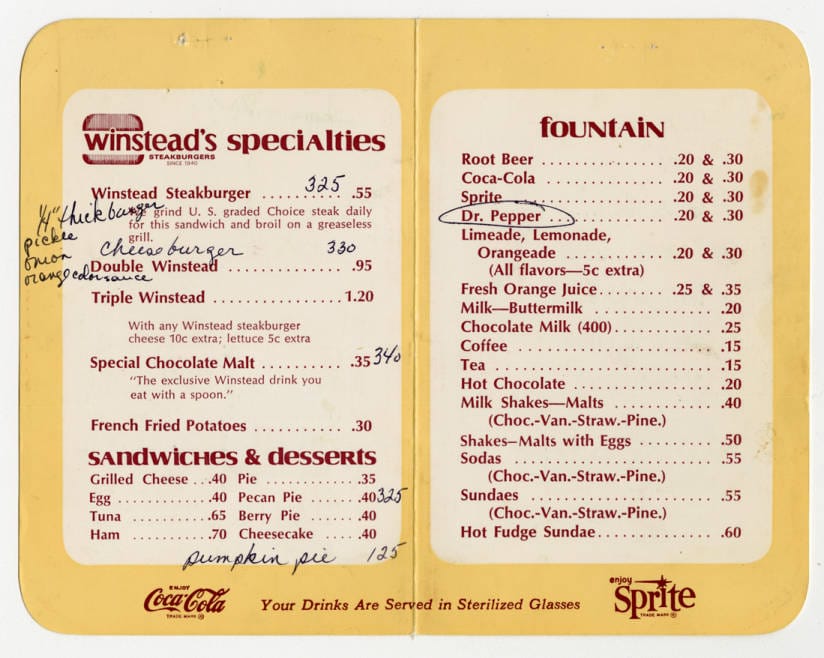 winstead's specialties
STEAKBURGERS
SINCE 1940
Winstead Steakburger .......... 325 .55
We grind U. S. graded Choice steak daily
for this sandwich and broil on a greaseless
grill.
1/4" thick burger
pickle
onion
orange color sauce
cheeseburger 330
Double Winstead .............. .95
Triple Winstead ................. 1.20
With any Winstead steakburger
cheese 10c extra; lettuce 5c extra
Special Chocolate Malt .......... .35 340
"The exclusive Winstead drink you
eat with a spoon."
French Fried Potatoes ........... .30
sandwiches & desserts
Grilled Cheese ...40 Pie ............. .35
Egg ............ .40 Pecan Pie ....... .40 325
Tuna .......... .65 Berry Pie ....... .40
Ham ........... .70 Cheesecake ..... .40
pumpkin pie 125
fountain
Root Beer ............... .20 & .30
Coca-Cola ............... .20 & .30
Sprite .................... .20 & .30
Dr. Pepper ............... .20 & .30
Limeade, Lemonade,
Orangeade ............. .20 & .30
(All flavors—5c extra)
Fresh Orange Juice ........ .25 & .35
Milk—Buttermilk ................ .20
Chocolate Milk (400) ............. .25
Coffee .......................... .15
Tea ............................. .15
Hot Chocolate ................... .20
Milk Shakes—Malts ............. .40
(Choc.-Van.-Straw.-Pine.)
Shakes—Malts with Eggs ......... .50
Sodas .......................... .55
(Choc.-Van.-Straw.-Pine.)
Sundaes ........................ .55
(Choc.-Van.-Straw.-Pine.)
Hot Fudge Sundae ............... .60
ENJOY
Coca-Cola
TRADE MARK ®
Your Drinks Are Served in Sterilized Glasses
enjoy
Sprite
TRADE MARK ®